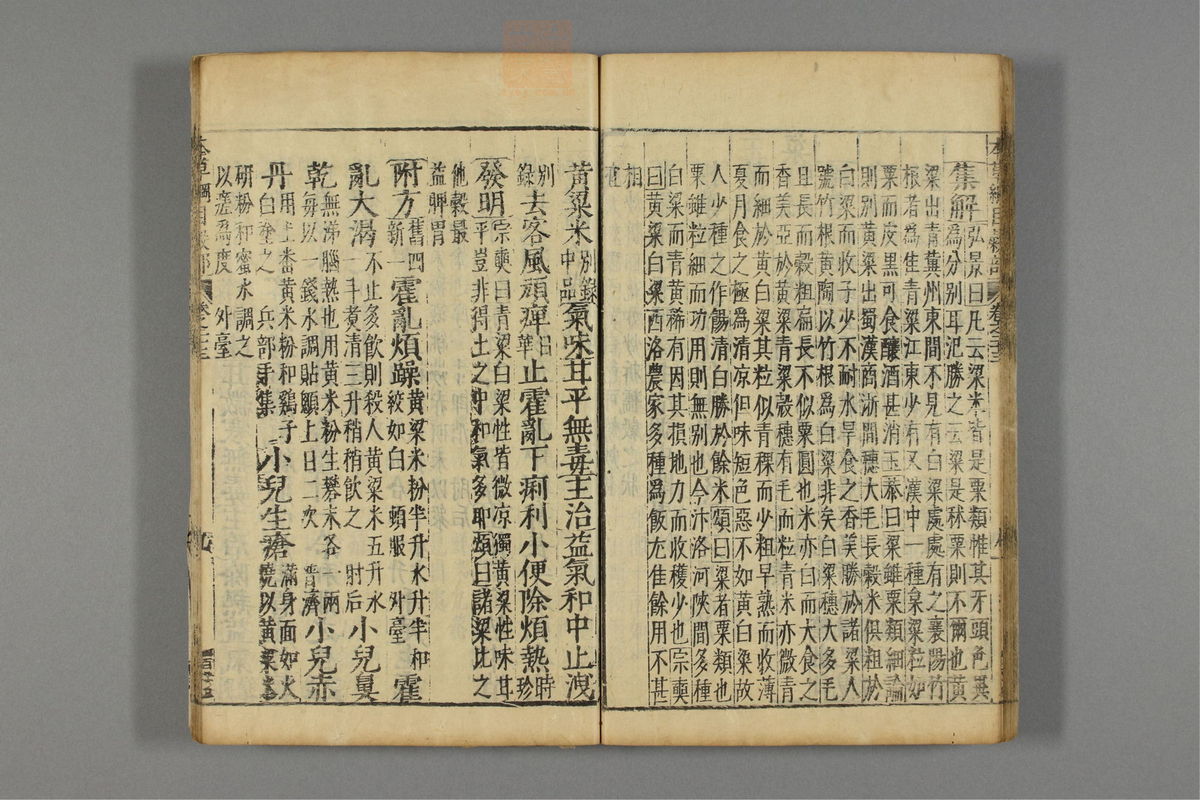 集解弘景曰凡云粱米皆是粟類惟其牙頭色異
為分別耳氾勝之云粱是秫粟則不爾也黃
粱出青冀州東間不見有白粱處處有之襄陽竹
根者為佳青粱江東少有又漢中一種枲粱粒如
粟而皮黑可食釀酒甚消玉恭曰粱雖粟類細論
則別黃粱出蜀漢商浙間穗大毛長穀米俱粗於
白粱而收子少不耐水旱食之香美勝於諸粱人
號竹根黃陶以竹根為白粱非矣白粱穗大多毛
且長而穀粗扁長不似粟圓也米亦白而大食之
香美亞於黃粱青粱穀穗有毛而粒青米亦微青
而細於黃白粱其粒似青稞而少粗早熟而收薄
夏月食之極為清凉但味短色惡不如黃白粱故
人少種之作餳清白勝於餘米頌曰粱者粟類也
粟雖粒細而功用則無別也今汴洛河陝間多種
白粱而青黃稀有因其損地力而收穫少也宗奭
曰黃粱白粱西洛農家多種為飯尤佳餘用不甚
相
宜
黃粱米別錄中品氣味甘平無毒主治益氣和中止洩
別錄去客風頑痺日華止霍亂下痢利小便除煩熱時珍
發明宗奭曰青粱白粱性皆微凉獨黃粱性味甘
平豈非得土之中和氣多耶頌曰諸粱比之
他穀最
益脾胃
附方舊四新一霍亂煩躁黃粱米粉半升水升半和絞如白飲頓服外臺霍
亂大渴不止多飲則殺人黃粱米五升水一斗煮清三升稍稍飲之肘后小兒鼻
乾無涕腦熱也用黃米粉生礬末各一兩每以一錢水調貼顖上日二次普濟小兒赤
丹用土番黃米粉和雞子白塗之兵部手集小兒生瘡滿身面如火燒以黃粱米
研粉和蜜水調之
以瘥為度外臺
本草綱目穀部
卷之二十三
九